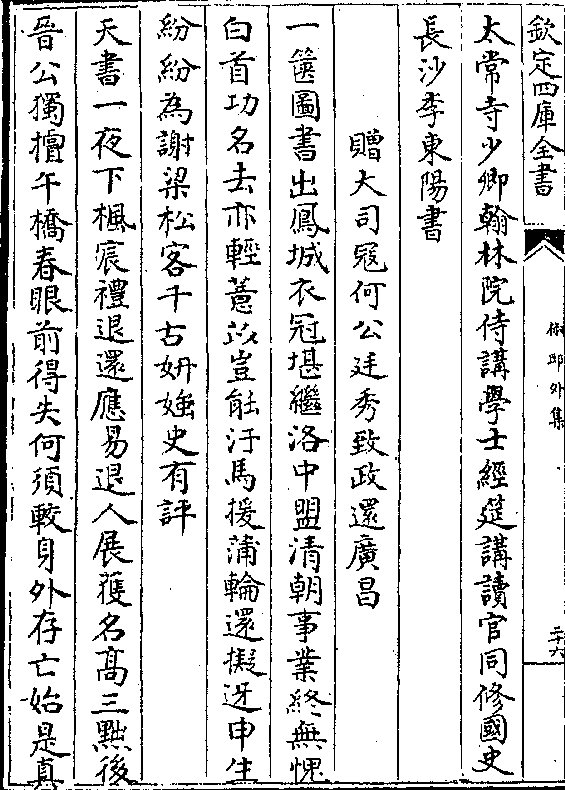 欽定四庫全書
椒邱外集
二十六
太常寺少卿翰林院侍講學士經筵講讀官同修國史
長沙李東陽書
贈大司寇何公廷秀致政還廣昌
一篋圖書出鳳城衣冠堪繼洛中盟清朝事業終無愧
白首功名去亦輕薏苡豈能汙馬援蒲輪還擬迓申生
紛紛為謝梁松客千古妍媸史有評
天書一夜下楓宸禮退還應易退人展獲名髙三黜後
晉公獨擅午橋春眼前得失何須較身外存亡始是真